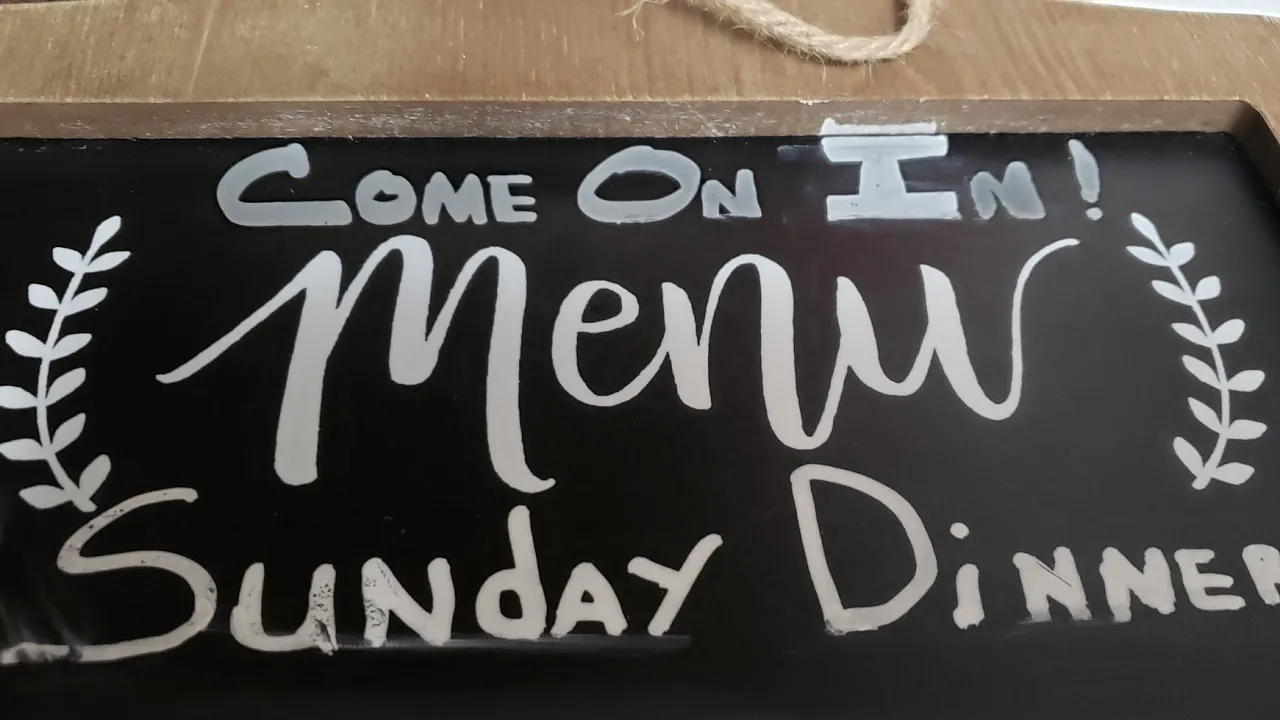 COME ON IN!
Menu
SUNdAY DiNNER